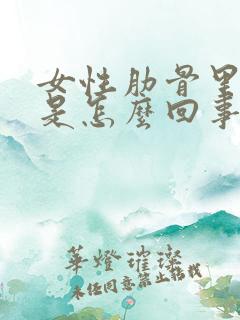 女性肋骨里
是怎麼回事
華燈璀璨
未经同意禁止搭载